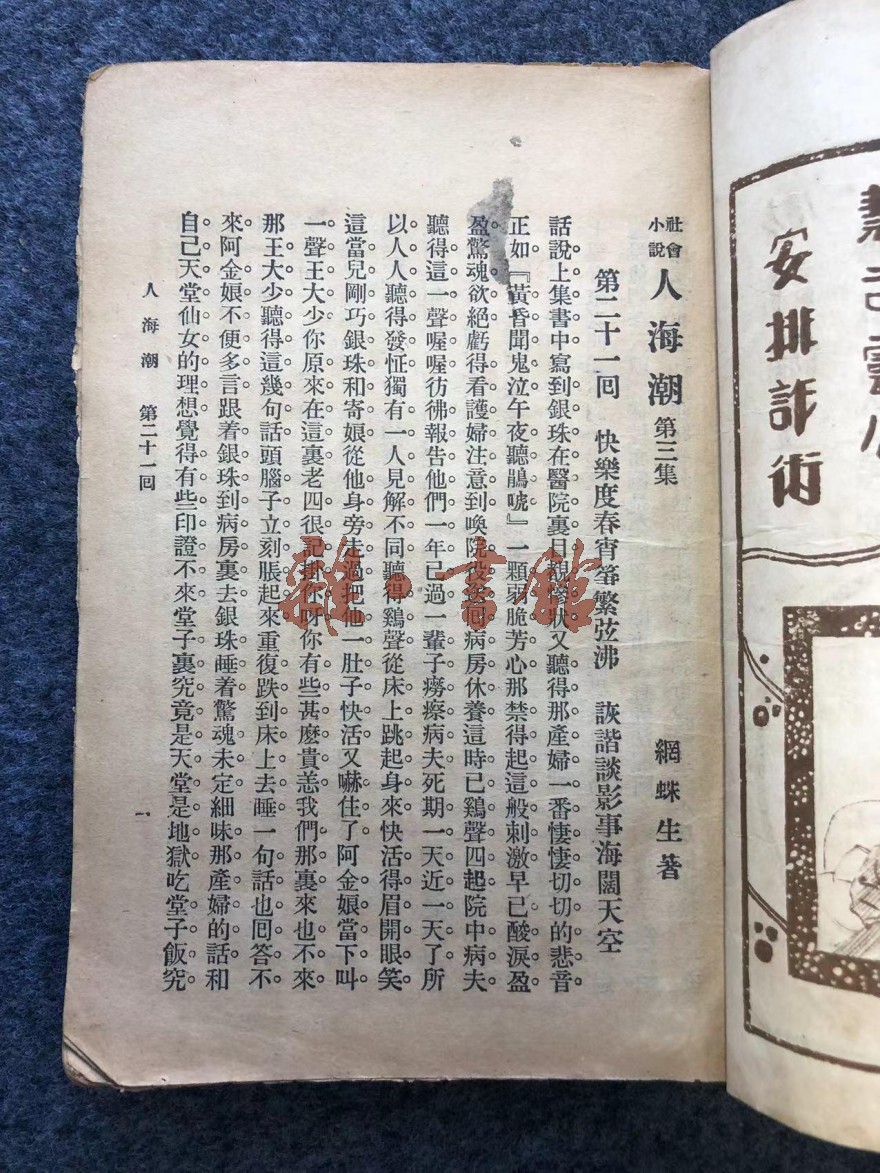 社會小說 人海潮 第三集 網蛛生著
第二十一回 快樂度春宵箏繁弦沸 詼諧談影事海闊天空
話說上集書中寫到銀珠在醫院裏目覩慘狀又聽得那產婦一番悽悽切切的悲音
正如『黃昏聞鬼泣午夜聽鵑唬』一顆弱脆芳心那禁得起這般刺激早已酸淚盈
盈驚魂欲絕虧得看護婦注意到喚院役送回病房休養這時已鷄聲四起院中病夫
聽得這一聲喔喔彷彿報告他們一年已過一輩子癆瘵病夫死期一天近一天了所
以人人聽得發怔獨有一人見解不同聽得鷄聲從床上跳起身來快活得眉開眼笑
這當兒剛巧銀珠和寄娘從他身旁走過把他一肚子快活又嚇住了阿金娘當下叫
一聲王大少你原來在這裏老四很記掛你呀你有些甚麽貴恙我們那裏來也不來
那王大少聽得這幾句話頭腦子立刻脹起來重復跌到床上去睡一句話也回答不
來阿金娘不便多言跟着銀珠到病房裏去銀珠睡着驚魂未定細味那產婦的話和
自己天堂仙女的理想覺得有些印證不來堂子裏究竟是天堂是地獄吃堂子飯究
人海潮 第二十一回
一
安排詐術
雜·書館